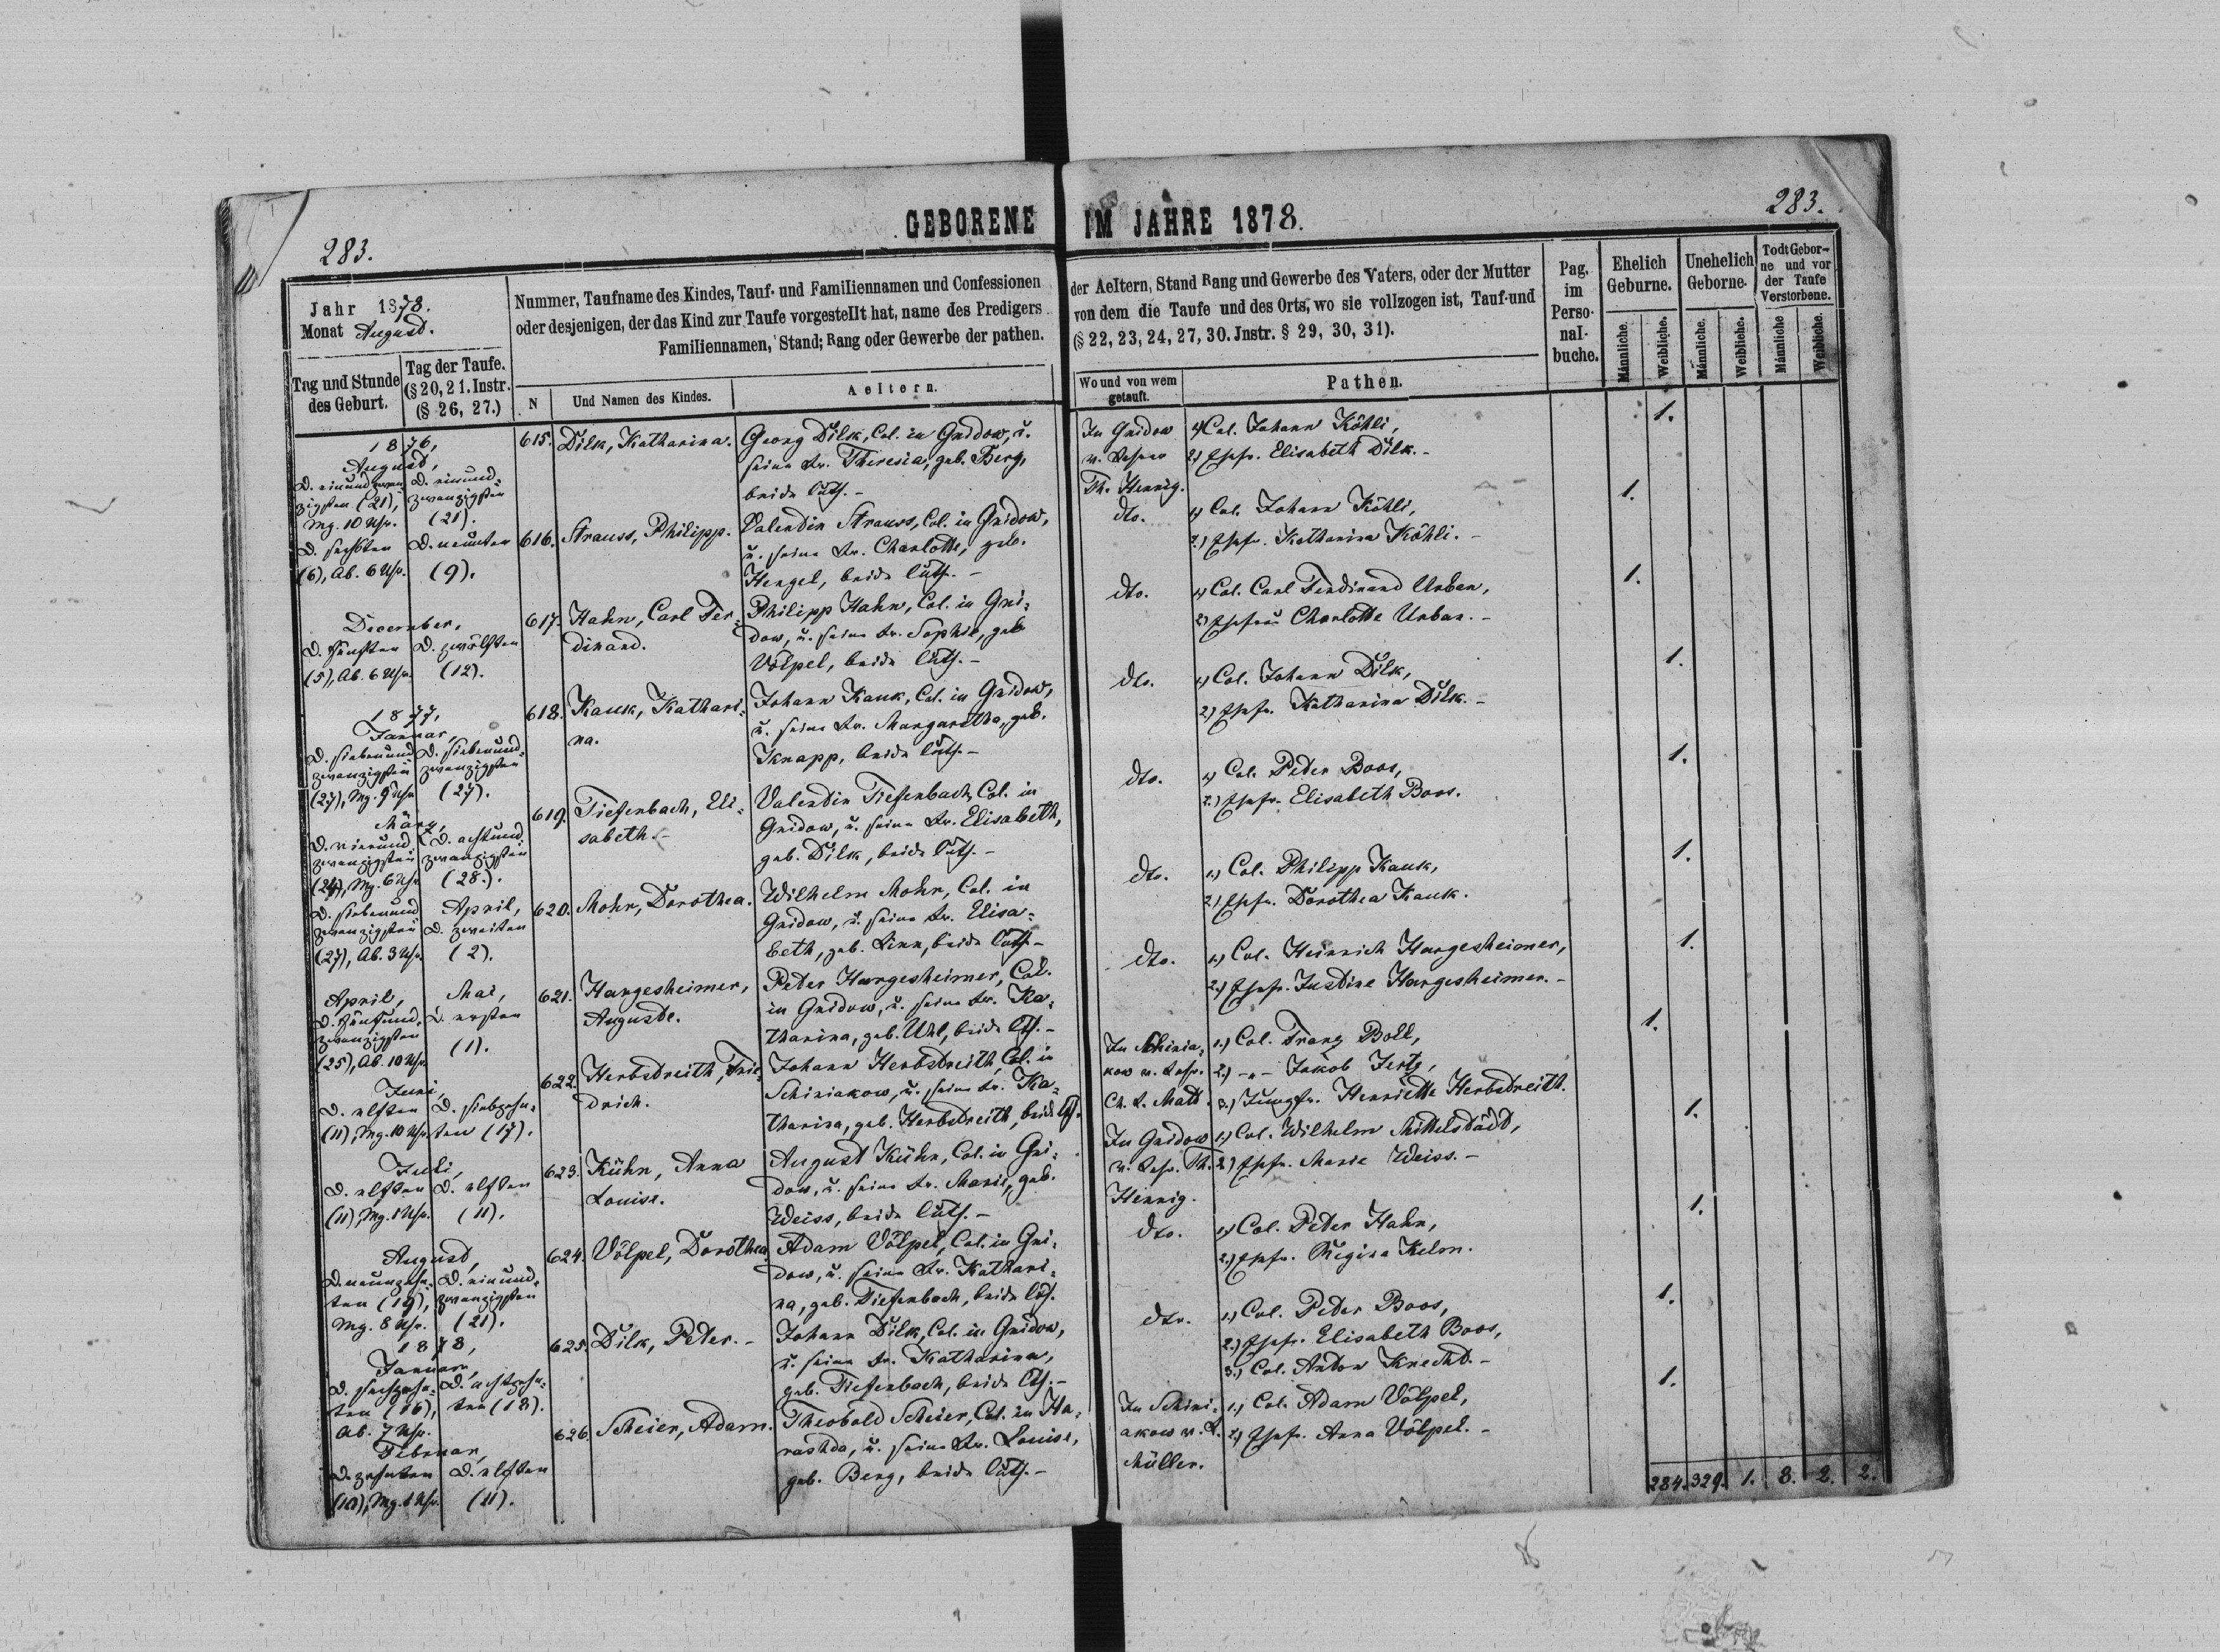 283.
GEBORENE IM JAHRE 1878.
283.
Jahr 1878.
Monat August.
Tag und Stunde des Geburt.
Tag der Taufe. (§ 20, 21. Instr. (§ 26, 27.)
Nummer, Taufname des Kindes, Tauf- und Familiennamen und Confessionen
oder desjenigen, der das Kind zur Taufe vorgestellt hat, name des Predigers
Familiennamen, Stand; Rang oder Gewerbe der pathen.
N
Und Namen des Kindes.
Aeltern.
der Aeltern, Stand Rang und Gewerbe des Vaters, oder der Mutter
von dem die Taufe und des Orts, wo sie vollzogen ist, Tauf-und
(§ 22, 23, 24, 27, 30. Jnstr. § 29, 30, 31).
Wo und von wem getauft.
Pathen.
Pag. im Perso- nal- buche.
Ehelich Geburne.
Unehelich Geborne.
Todt Gebor- ne und vor der Taufe Verstorbene.
Männliche.
Weibliche.
Männliche.
Weibliche.
Männliche
Weibliche.
1876,
August,
D. einundzwan- D. einund-
zigsten (21), zwanzigsten
Mg. 10 Uhr. (21).
615. Dilk, Katharina.
Georg Dilk, Col. in Gnidow, u.
seine Fr. Theresia, geb. Berg,
beide luth. -
In Gnidow
v. Lehrer
Th. Hennig.
1.) Col. Johann Köhli,
2.) Ehefr. Elisabeth Dilk. -
1.
D. sechsten D. neunten
(6), Ab. 6 Uhr. (9).
616. Strauss, Philipp.
Valentin Strauss, Col. in Gnidow,
u. seine Fr. Charlotte, geb.
Hengel, beide luth. -
dto.
1.) Col. Johann Köhli,
2.) Ehefr. Katharina Köhli. -
1.
December.
D. fünften D. zwölften
(5), Ab. 6 Uhr. (12).
617. Hahn, Carl Fer-
dinand.
Philipp Hahn, Col. in Gni-
dow, u. seine Fr. Sophie, geb.
Völpel, beide luth. -
dto.
1.) Col. Carl Ferdinand Urban,
2.) Ehefrau Charlotte Urban. -
1.
1877,
Januar,
D. siebenund D. siebenund-
zwanzigsten zwanzigsten
(27), Mg. 9 Uhr (27).
618. Kauk, Kathari-
na.
Johann Kauk, Col. in Gnidow,
u. seine Fr. Margaretha, geb.
Knapp, beide luth. -
dto.
1.) Col. Johann Dilk,
2.) Ehefr. Katharina Dilk. -
1.
März,
D. vierund D. achtund
zwanzigsten zwanzigsten
(24), Mg. 6 Uhr (28.).
619. Tiefenbach, Eli-
sabeth. -
Valentin Tiefenbach, Col. in
Gnidow, u. seine Fr. Elisabeth,
geb. Dilk, beide luth. -
dto.
1.) Col. Peter Boos,
2.) Ehefr. Elisabeth Boos.
1.
D. siebenund April,
zwanzigsten D. zweiten
(27), Ab. 3 Uhr. (2).
620. Mohr, Dorothea.
Wilhelm Mohr, Col. in
Gnidow, u. seine Fr. Elisa-
beth, geb. Linn, beide luth. -
dto.
1.) Col. Philipp Kauk,
2.) Ehefr. Dorothea Kauk.
1.
April, Mai,
D. fünfund- D. ersten
zwanzigsten (1).
(25), Ab. 10 Uhr.
621. Hargesheimer,
Auguste.
Peter Hargesheimer, Col.
in Gnidow, u. seine Fr. Ka-
tharina, geb. Uhl, beide lth. -
dto.
1.) Col. Heinrich Hargesheimer,
2.) Ehefr. Justine Hargesheimer. -
1.
Juni,
D. elften D. siebzehn-
(11), Mg. 10 Uhr ten (17).
622. Herbstreith, Frie-
drich.
Johann Herbstreith, Col. in
Schiniakow, u. seine Fr. Ka-
tharina, geb. Herbstreith, beide lth.
In Schinia-
kow v. Lehr.
Ch. L. Matt.
1.) Col. Franz Boll,
2.) -"- Jakob Jertz,
3.) Jungfr. Henriette Herbstreith.
1.
Juli,
D. elften D. elften
(11), Mg. 1 Uhr. (11).
623. Kühn, Anna
Louise.
August Kühn, Col. in Gni-
dow, u. seine Fr. Marie, geb.
Weiss, beide luth. -
In Gnidow
v. Lehr. Th.
Hennig.
1.) Col. Wilhelm Mittelstädt,
2.) Ehefr. Marie Weiss. -
1.
August,
D. neunzehn- D. einund-
ten (19), zwanzigsten
Mg. 8 Uhr. (21).
624. Völpel, Dorothea
Adam Völpel, Col. in Gni-
dow, u. seine Fr. Kathari-
na, geb. Tiefenbach, beide lth.
dto.
1.) Col. Peter Hahn,
2.) Ehefr. Regina Kelm.
1.
1878,
Januar,
D. sechzehn- D. achtzehn-
ten (16), ten (18).
Ab. 7 Uhr.
625. Dilk, Peter. -
Johann Dilk, Col. in Gnidow,
u. seine Fr. Katharina,
geb. Tiefenbach, beide lth. -
dto.
1.) Col. Peter Boos,
2.) Ehefr. Elisabeth Boos,
3.) Col. Anton Knecht. -
1.
Februar,
D. zehnten D. elften
(10), Mg. 1 Uhr. (11).
626. Scheier, Adam.
Theobald Scheier, Col. in Ha-
rashda, u. seine Fr. Louise,
geb. Berg, beide luth. -
In Schini-
akow v. L.
Müller.
1.) Col. Adam Völpel,
2.) Ehefr. Anna Völpel. -
1.
284. 329. 1. 8. 2. 2.